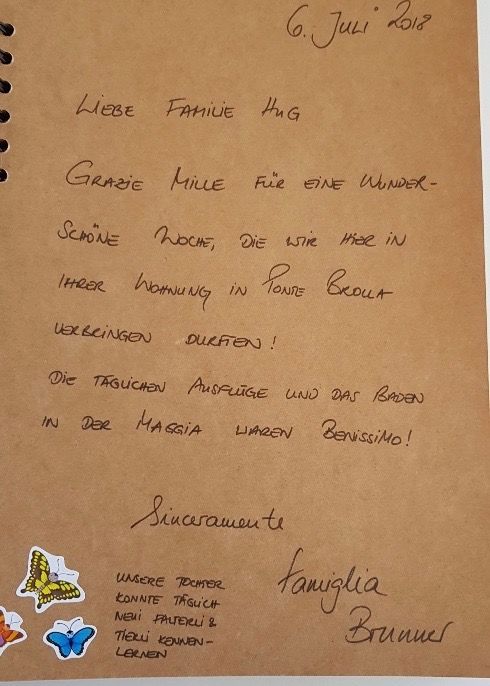 6. Juli 2018
Liebe Familie Hug
Grazie Mille für eine wunder-
schöne Woche, die wir hier in
Ihrer Wohnung in Ponte Brolla
verbringen durften!
Die täglichen Ausflüge und das Baden
in der Maggia waren Benissimo!
Sinceramente
Famiglia
Brunner
Unsere Tochter
konnte täglich
neui Falterli &
Tierli kennen-
lernen